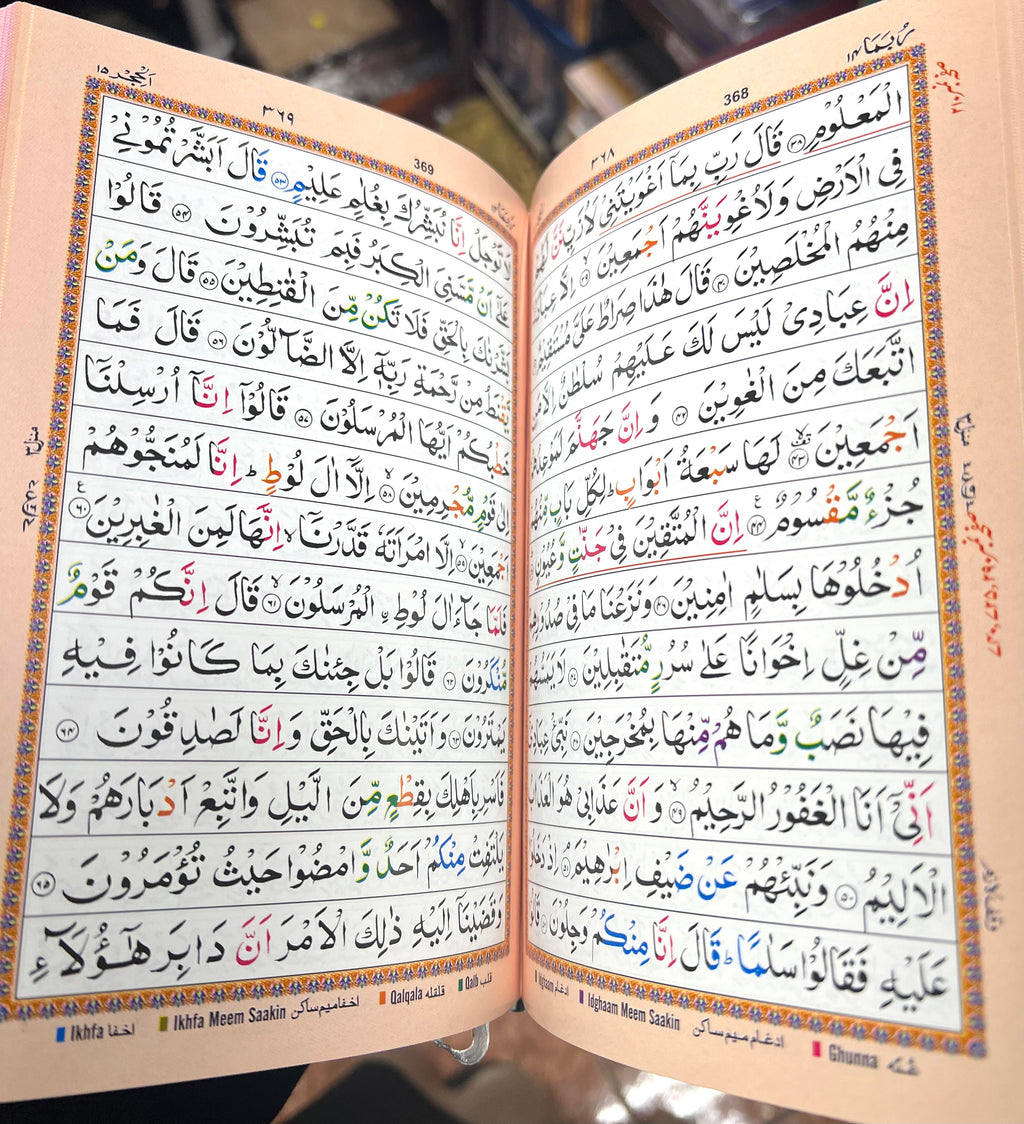 رُبَمَا ١٤
368
٣٦٨
الْمَعْلُوْمِ ﴿٣٨﴾ قَالَ رَبِّ بِمَاۤ اَغْوَيْتَنِيْ لَاُزَيِّنَنَّ
فِي الْاَرْضِ وَلَاُغْوِيَنَّهُمْ اَجْمَعِيْنَ ﴿٣٩﴾ اِلَّا
مِنْهُمُ الْمُخْلَصِيْنَ ﴿٤٠﴾ قَالَ هٰذَا صِرَاطٌ عَلَيَّ مُسْتَقِيْمٌ
اِنَّ عِبَادِيْ لَيْسَ لَكَ عَلَيْهِمْ سُلْطٰنٌ اِلَّا
اتَّبَعَكَ مِنَ الْغٰوِيْنَ ﴿٤٢﴾ وَاِنَّ جَهَنَّمَ
اَجْمَعِيْنَ ﴿٤٣﴾ لَهَا سَبْعَةُ اَبْوَابٍ ؕ لِكُلِّ بَابٍ مِّنْهُمْ
جُزْءٌ مَّقْسُوْمٌ ﴿٤٤﴾ اِنَّ الْمُتَّقِيْنَ فِيْ جَنّٰتٍ وَّعُيُوْنٍ
اُدْخُلُوْهَا بِسَلٰمٍ اٰمِنِيْنَ ﴿٤٦﴾ وَنَزَعْنَا مَا فِيْ
مِّنْ غِلٍّ اِخْوَانًا عَلٰى سُرُرٍ مُّتَقٰبِلِيْنَ ﴿٤٧﴾ لَا يَمَسُّهُمْ
فِيْهَا نَصَبٌ وَّمَا هُمْ مِّنْهَا بِمُخْرَجِيْنَ ﴿٤٨﴾ نَبِّئْ
اَنِّيْۤ اَنَا الْغَفُوْرُ الرَّحِيْمُ ﴿٤٩﴾ وَاَنَّ عَذَابِيْ هُوَ الْعَذَابُ
الْاَلِيْمُ ﴿٥٠﴾ وَنَبِّئْهُمْ عَنْ ضَيْفِ اِبْرٰهِيْمَ ﴿٥١﴾ اِذْ
عَلَيْهِ فَقَالُوْا سَلٰمًا ؕ قَالَ اِنَّا مِنْكُمْ وَجِلُوْنَ ﴿٥٢﴾
Ghunna غنه Idghaam Meem Saakin ادغام ميم ساكن Idghaam ادغام
اَلْحِجْر ١٥
٣٦٩
369
لَا تَوْجَلْ اِنَّا نُبَشِّرُكَ بِغُلٰمٍ عَلِيْمٍ ﴿٥٣﴾ قَالَ اَبَشَّرْتُمُوْنِيْ
عَلٰۤى اَنْ مَّسَّنِيَ الْكِبَرُ فَبِمَ تُبَشِّرُوْنَ ﴿٥٤﴾ قَالُوْا
بَشَّرْنٰكَ بِالْحَقِّ فَلَا تَكُنْ مِّنَ الْقٰنِطِيْنَ ﴿٥٥﴾ قَالَ وَمَنْ
يَّقْنَطُ مِنْ رَّحْمَةِ رَبِّهٖۤ اِلَّا الضَّآلُّوْنَ ﴿٥٦﴾ قَالَ فَمَا
خَطْبُكُمْ اَيُّهَا الْمُرْسَلُوْنَ ﴿٥٧﴾ قَالُوْۤا اِنَّاۤ اُرْسِلْنَاۤ
اِلٰى قَوْمٍ مُّجْرِمِيْنَ ﴿٥٨﴾ اِلَّاۤ اٰلَ لُوْطٍ ؕ اِنَّا لَمُنَجُّوْهُمْ
اَجْمَعِيْنَ ﴿٥٩﴾ اِلَّا امْرَاَتَهٗ قَدَّرْنَاۤ ۙ اِنَّهَا لَمِنَ الْغٰبِرِيْنَ ﴿٦٠﴾
فَلَمَّا جَآءَ اٰلَ لُوْطِ ِۨ الْمُرْسَلُوْنَ ﴿٦١﴾ قَالَ اِنَّكُمْ قَوْمٌ
مُّنْكَرُوْنَ ﴿٦٢﴾ قَالُوْا بَلْ جِئْنٰكَ بِمَا كَانُوْا فِيْهِ
يَمْتَرُوْنَ ﴿٦٣﴾ وَاَتَيْنٰكَ بِالْحَقِّ وَاِنَّا لَصٰدِقُوْنَ ﴿٦٤﴾
فَاَسْرِ بِاَهْلِكَ بِقِطْعٍ مِّنَ الَّيْلِ وَاتَّبِعْ اَدْبَارَهُمْ وَلَا
يَلْتَفِتْ مِنْكُمْ اَحَدٌ وَّامْضُوْا حَيْثُ تُؤْمَرُوْنَ ﴿٦٥﴾
وَقَضَيْنَاۤ اِلَيْهِ ذٰلِكَ الْاَمْرَ اَنَّ دَابِرَ هٰۤؤُلَآءِ
Qalb قلب Qalqala قلقله Ikhfa Meem Saakin اخفا ميم ساكن Ikhfa اخفا